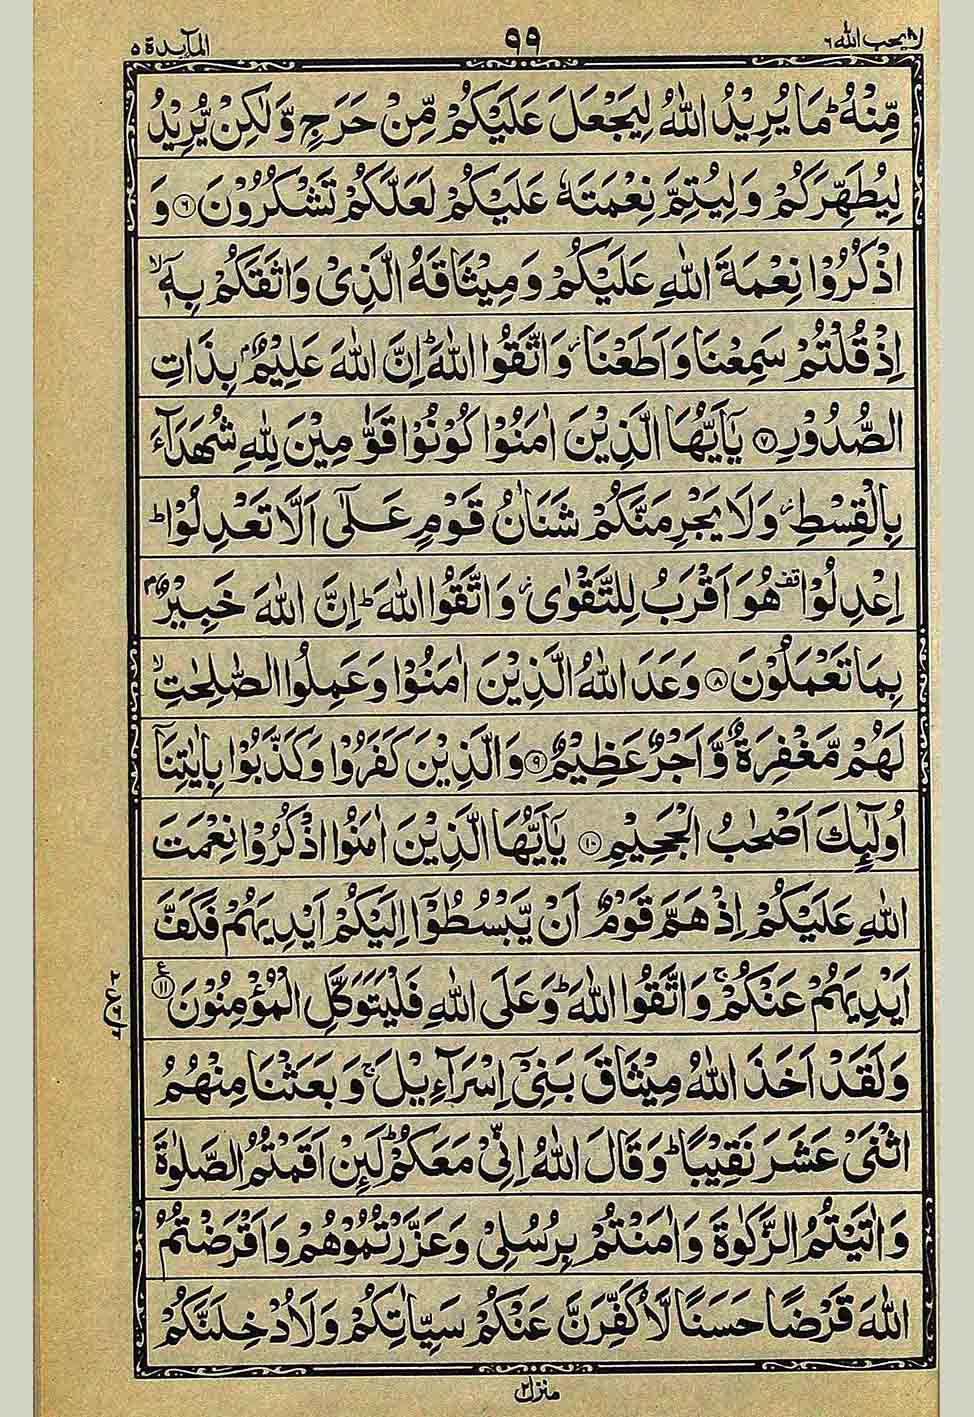 لا يحب الله ٦
٩٩
المآيدة ٥
مِّنْهُ ؕ مَا يُرِيْدُ اللّٰهُ لِيَجْعَلَ عَلَيْكُمْ مِّنْ حَرَجٍ وَّلٰكِنْ يُّرِيْدُ
لِيُطَهِّرَكُمْ وَلِيُتِمَّ نِعْمَتَهٗ عَلَيْكُمْ لَعَلَّكُمْ تَشْكُرُوْنَ ۝٦ وَ
اذْكُرُوْا نِعْمَةَ اللّٰهِ عَلَيْكُمْ وَمِيْثَاقَهُ الَّذِىْ وَاثَقَكُمْ بِهٖۤ ۙ
اِذْ قُلْتُمْ سَمِعْنَا وَاَطَعْنَا ؗ وَاتَّقُوا اللّٰهَ ؕ اِنَّ اللّٰهَ عَلِيْمٌۢ بِذَاتِ
الصُّدُوْرِ ۝٧ يٰۤاَيُّهَا الَّذِيْنَ اٰمَنُوْا كُوْنُوْا قَوّٰمِيْنَ لِلّٰهِ شُهَدَآءَ
بِالْقِسْطِ ؗ وَلَا يَجْرِمَنَّكُمْ شَنَاٰنُ قَوْمٍ عَلٰٓى اَلَّا تَعْدِلُوْا ؕ
اِعْدِلُوْا ࣞ هُوَ اَقْرَبُ لِلتَّقْوٰى ؗ وَاتَّقُوا اللّٰهَ ؕ اِنَّ اللّٰهَ خَبِيْرٌۢ
بِمَا تَعْمَلُوْنَ ۝٨ وَعَدَ اللّٰهُ الَّذِيْنَ اٰمَنُوْا وَعَمِلُوا الصّٰلِحٰتِ ۙ
لَهُمْ مَّغْفِرَةٌ وَّاَجْرٌ عَظِيْمٌ ۝٩ وَالَّذِيْنَ كَفَرُوْا وَكَذَّبُوْا بِاٰيٰتِنَاۤ
اُولٰٓئِكَ اَصْحٰبُ الْجَحِيْمِ ۝١٠ يٰۤاَيُّهَا الَّذِيْنَ اٰمَنُوا اذْكُرُوْا نِعْمَتَ
اللّٰهِ عَلَيْكُمْ اِذْ هَمَّ قَوْمٌ اَنْ يَّبْسُطُوْۤا اِلَيْكُمْ اَيْدِيَهُمْ فَكَفَّ
اَيْدِيَهُمْ عَنْكُمْ ۚ وَاتَّقُوا اللّٰهَ ؕ وَعَلَى اللّٰهِ فَلْيَتَوَكَّلِ الْمُؤْمِنُوْنَ ۝١١ ع
وَلَقَدْ اَخَذَ اللّٰهُ مِيْثَاقَ بَنِىْۤ اِسْرَآءِيْلَ ۚ وَبَعَثْنَا مِنْهُمُ
اثْنَىْ عَشَرَ نَقِيْبًا ؕ وَقَالَ اللّٰهُ اِنِّىْ مَعَكُمْ ؕ لَئِنْ اَقَمْتُمُ الصَّلٰوةَ
وَاٰتَيْتُمُ الزَّكٰوةَ وَاٰمَنْتُمْ بِرُسُلِىْ وَعَزَّرْتُمُوْهُمْ وَاَقْرَضْتُمُ
اللّٰهَ قَرْضًا حَسَنًا لَّاُكَفِّرَنَّ عَنْكُمْ سَيِّاٰتِكُمْ وَلَاُدْخِلَنَّكُمْ
منزل ٢